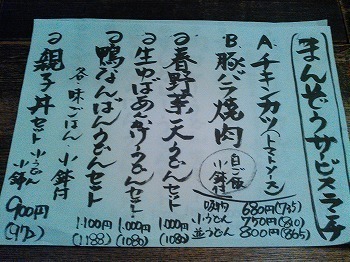 まんぞうサービスランチ
A.チキンカツ(トマトソース)
B.豚バラ焼肉
白ご飯
小鉢付
吸物付 680円(735)
小うどん 750円(810)
並うどん 800円(865)
春野菜天うどんセット 1,000円(1080)
生ゆばあんかけうどんセット 1,000円(1080)
鴨なんばんうどんセット 1,100円(1188)
各味ごはん・小鉢付
親子丼セット 小うどん 小鉢 900円(972)